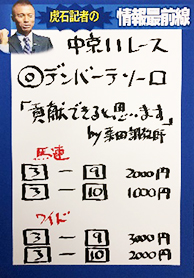 虎石記者の
情報最前線
中京11レース
◎デンバーテソーロ
「貢献できると思います」
by 栗田調教師
馬連
3 - 9 2000円
3 - 10 1000円
ワイド
3 - 9 3000円
3 - 10 2000円